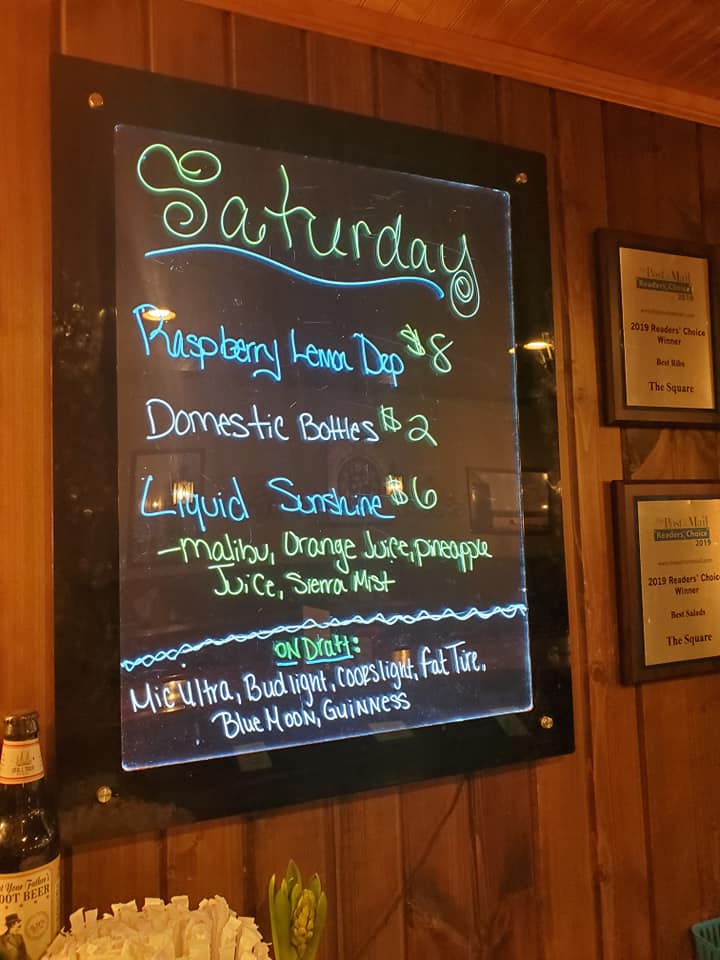 Saturday
Raspberry Lemon Dop $8
Domestic Bottles $2
Liquid Sunshine $6
-Malibu, Orange Juice, pineapple
Juice, Sierra Mist
ON Draft:
Mic Ultra, Bud light, Coorslight, Fat Tire,
Blue Moon, Guinness
The Post & Mail
Readers' Choice
2019
2019 Readers' Choice
Winner
Best Ribs
The Square
The Post & Mail
Readers' Choice
2019
2019 Readers' Choice
Winner
Best Salads
The Square
Your Father's
ROOT BEER